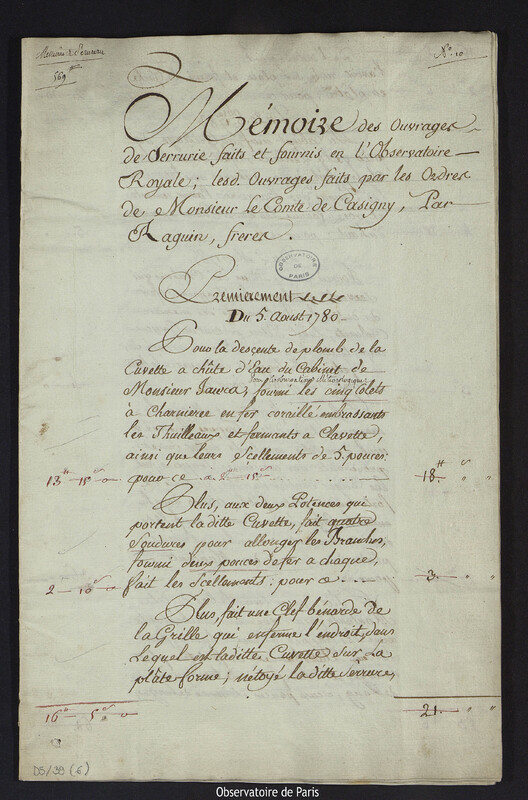 Mémoire de Serrurerie
569#
N.° 10
Mémoire des Ouvrages
de Serrurie faits et fournis en l'Observatoire
Royale; lesd. Ouvrages faits par les Ordres
de Monsieur le Comte de Casigny, Par
Raguin, freres.
OBSERVATOIRE DE PARIS
Premierement
Du 5. Aoust 1780.
Sous la descente de plomb de la
Cuvette à chûte d'Eau du Cabinet de
pour les observations Météorologiques
Monsieur Jawra; fourni les cinq Colets
à Charnieres en fer coraillé embrassants
les Thuilleaux et fermants à Clavette,
ainsi que leurs Scellements de 5. pouces
13# 15s pour ce 18#
Plus, aux deux Potences qui
portent laditte Cuvette, fait quatre
Soudures pour allonger les Branches,
fourni deux pouces de fer a chaque,
2 - 10s fait les Scellements: pour ce 3. " "
Plus, fait une Clef bénarde de
la Grille qui enferme l'endroit, dans
Lequel est laditte Cuvette sur la
plate-forme; nétoyé laditte Serrure,
16# 5s 21. " "
D5/39 (6)
Observatoire de Paris